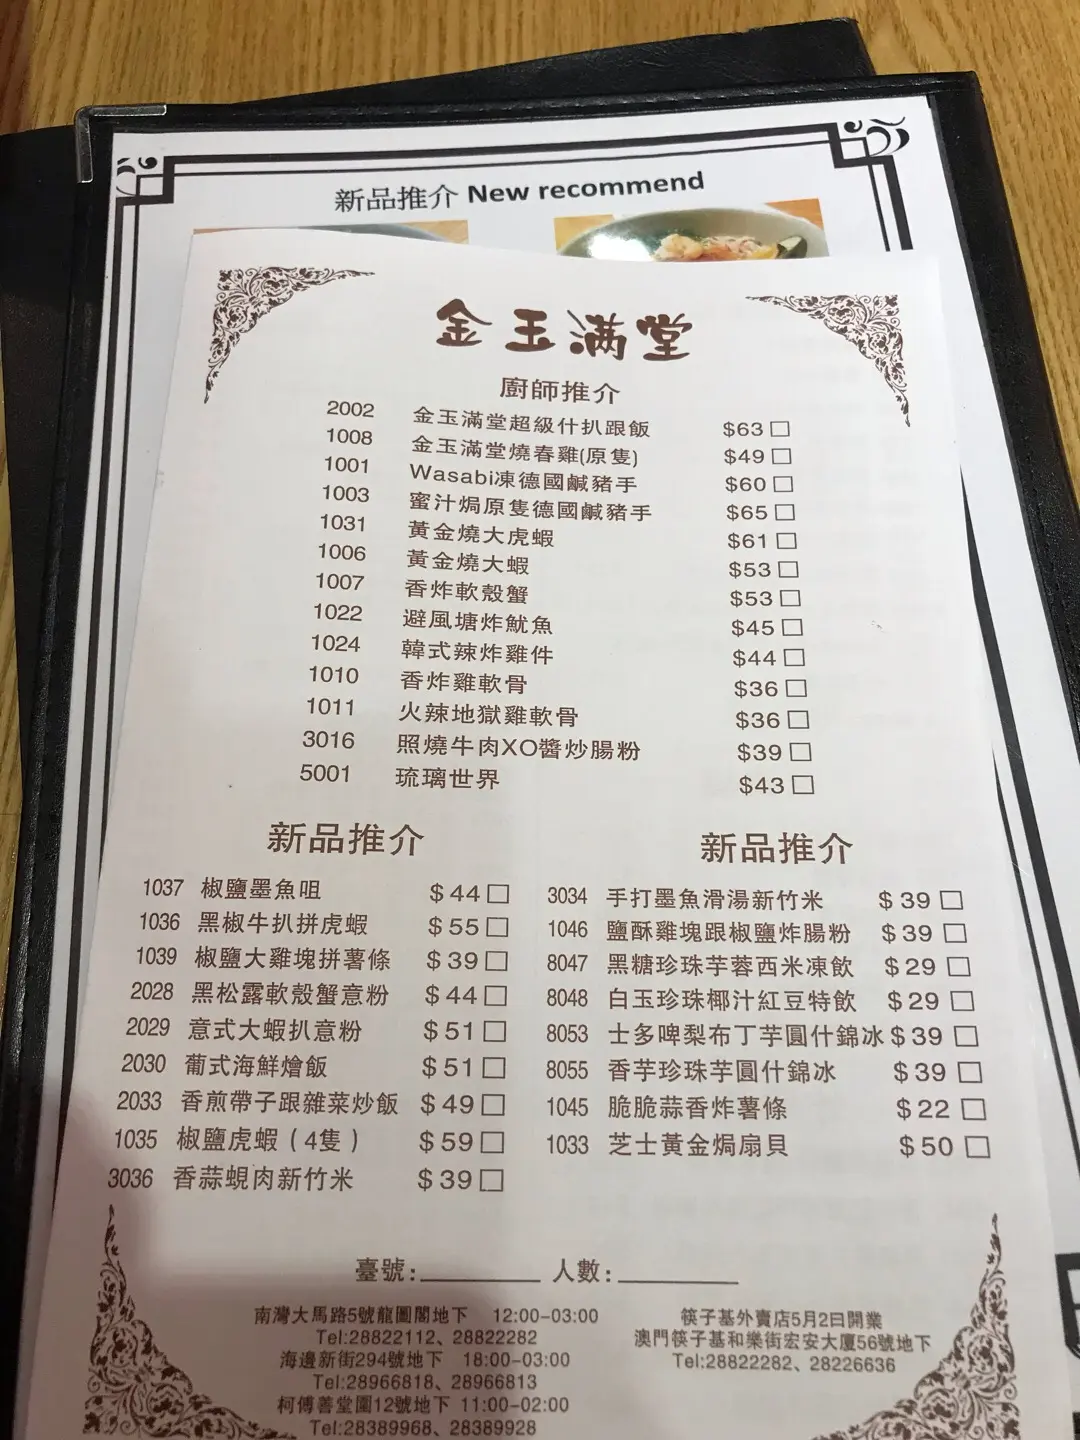 新品推介 New recommend
金玉滿堂
廚師推介
2002 金玉滿堂超級什扒跟飯 $63 □
1008 金玉滿堂燒春雞(原隻) $49 □
1001 Wasabi凍德國鹹豬手 $60 □
1003 蜜汁焗原隻德國鹹豬手 $65 □
1031 黃金燒大虎蝦 $61 □
1006 黃金燒大蝦 $53 □
1007 香炸軟殼蟹 $53 □
1022 避風塘炸魷魚 $45 □
1024 韓式辣炸雞件 $44 □
1010 香炸雞軟骨 $36 □
1011 火辣地獄雞軟骨 $36 □
3016 照燒牛肉XO醬炒腸粉 $39 □
5001 琉璃世界 $43 □
新品推介
1037 椒鹽墨魚咀 $44 □
1036 黑椒牛扒拼虎蝦 $55 □
1039 椒鹽大雞塊拼薯條 $39 □
2028 黑松露軟殼蟹意粉 $44 □
2029 意式大蝦扒意粉 $51 □
2030 葡式海鮮燴飯 $51 □
2033 香煎帶子跟雜菜炒飯 $49 □
1035 椒鹽虎蝦(4隻) $59 □
3036 香蒜蜆肉新竹米 $39 □
新品推介
3034 手打墨魚滑湯新竹米 $39 □
1046 鹽酥雞塊跟椒鹽炸腸粉 $39 □
8047 黑糖珍珠芋蓉西米凍飲 $29 □
8048 白玉珍珠椰汁紅豆特飲 $29 □
8053 士多啤梨布丁芋圓什錦冰 $39 □
8055 香芋珍珠芋圓什錦冰 $39 □
1045 脆脆蒜香炸薯條 $22 □
1033 芝士黃金焗扇貝 $50 □
臺號:________ 人數:________
南灣大馬路5號龍圖閣地下 12:00-03:00
Tel:28822112、28822282
海邊新街294號地下 18:00-03:00
Tel:28966818、28966813
柯傅善堂圍12號地下 11:00-02:00
Tel:28389968、28389928
筷子基外賣店5月2日開業
澳門筷子基和樂街宏安大廈56號地下
Tel:28822282、28226636